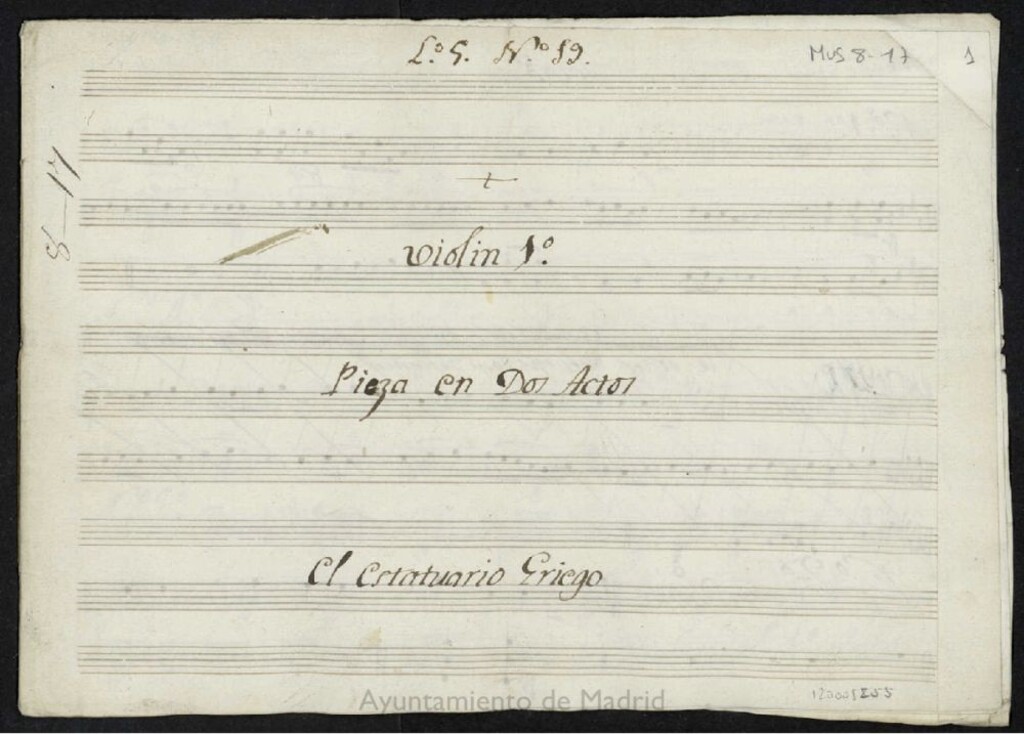 L.º 5. N.º 19.
Mus 8-17
1
8-17
Violin 1º.
Pieza en Dos Actos
El Estatuario Griego
Ayuntamiento de Madrid